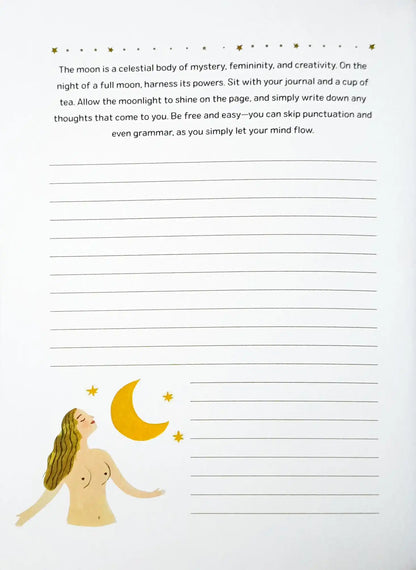 The moon is a celestial body of mystery, femininity, and creativity. On the
night of a full moon, harness its powers. Sit with your journal and a cup of
tea. Allow the moonlight to shine on the page, and simply write down any
thoughts that come to you. Be free and easy—you can skip punctuation and
even grammar, as you simply let your mind flow.